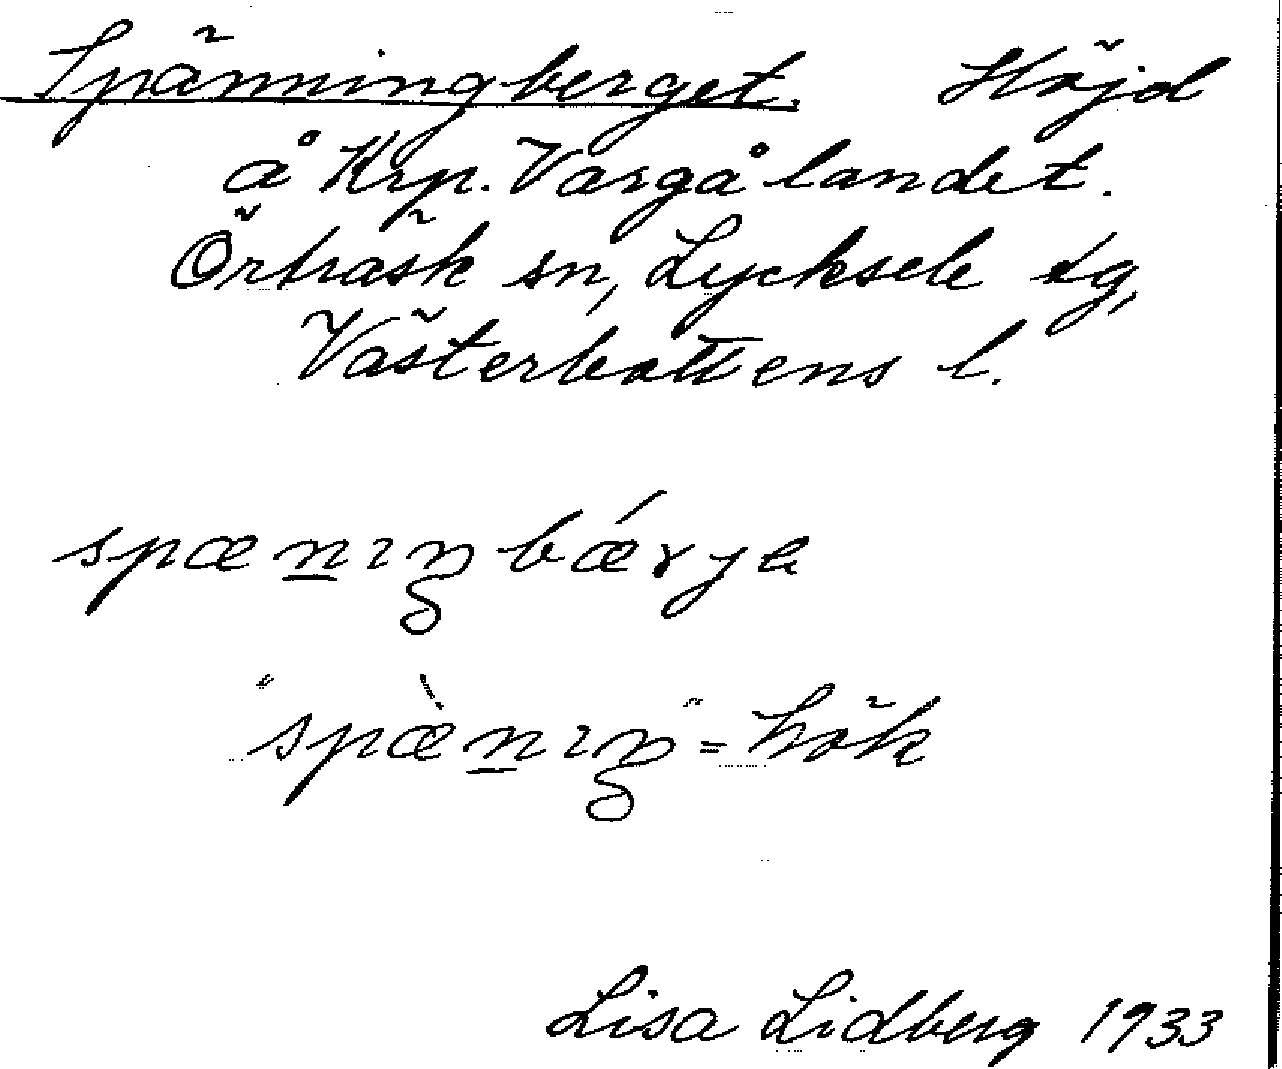 Spänningberget. Höjd
å Krp. Vargålandet.
Örträsk sn, Lycksele tg,
Västerbottens l.
spæn̲ıŋbǽrɟa
"spæ̀n̲ıŋ" = hök
Lisa Lidberg 1933